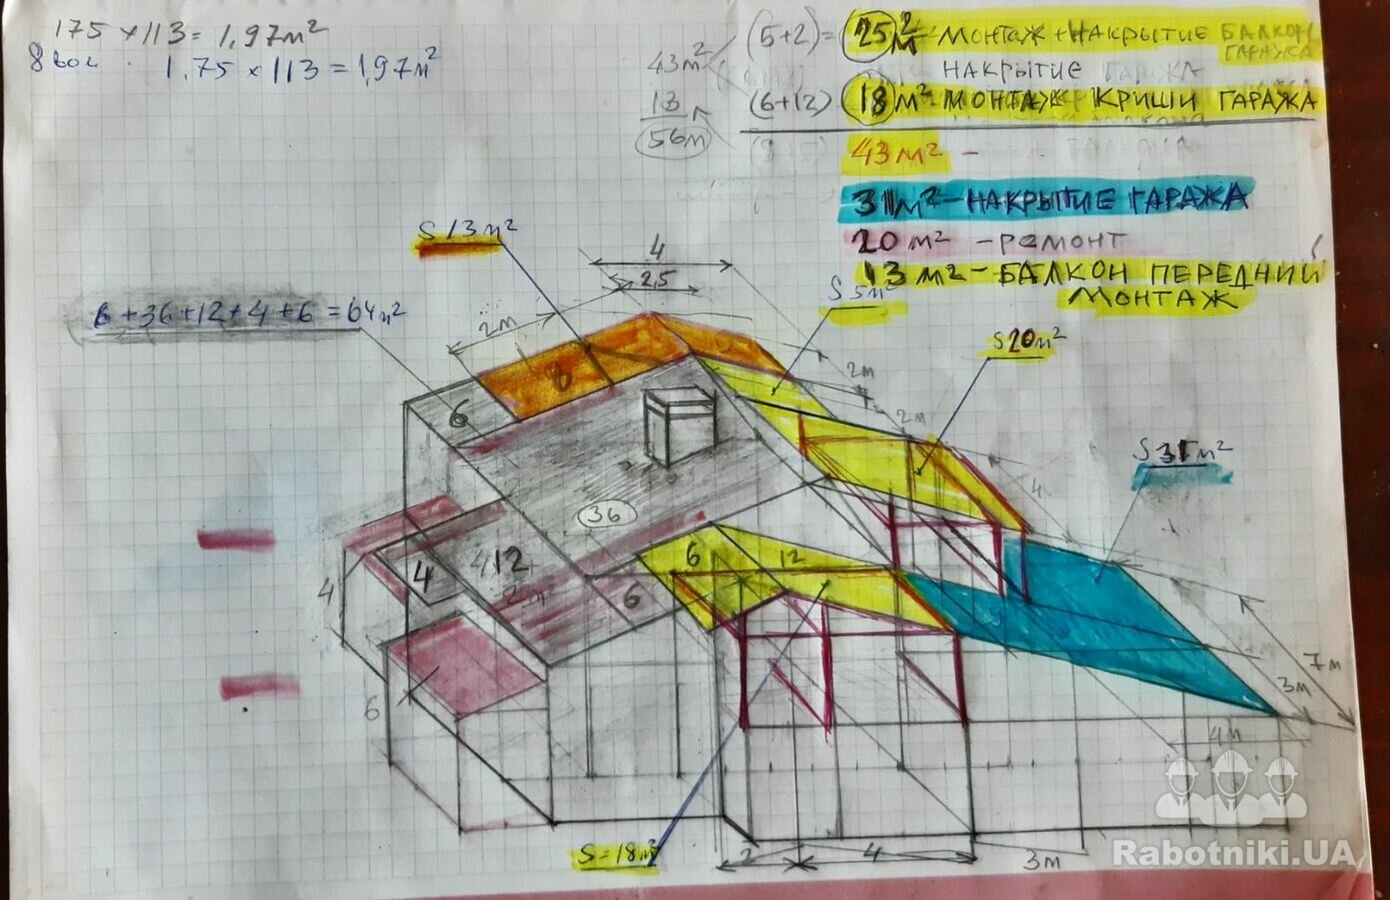 175 × 113 = 1,97м²
1.75 × 113 = 1,97м²
43м²
13
56м
(5+2) = 25м² - МОНТАЖ + НАКРЫТИЕ БАЛКОН
ГАРАЖА
НАКРЫТИЕ ГАРАЖА
(6+12) 18м² МОНТАЖ КРИШИ ГАРАЖА
43м² -
31м² - НАКРЫТИЕ ГАРАЖА
20м² - ремонт
13м² - БАЛКОН ПЕРЕДНИЙ
МОНТАЖ
S 13м²
4
2,5
S 5м²
6+36+12+4+6 = 64м²
2м
S 20м²
2м
8
2м
6
S 31м²
4
36
4
4
12
6
12
6
6
7м
3м
4м
S=18м²
2
4
3м
Rabotniki.UA